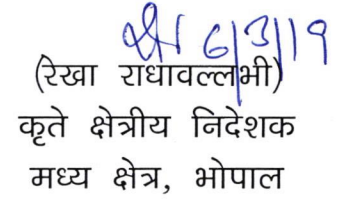 6/3/19
(रेखा राधावल्लभी)
कृते क्षेत्रीय निदेशक
मध्य क्षेत्र, भोपाल